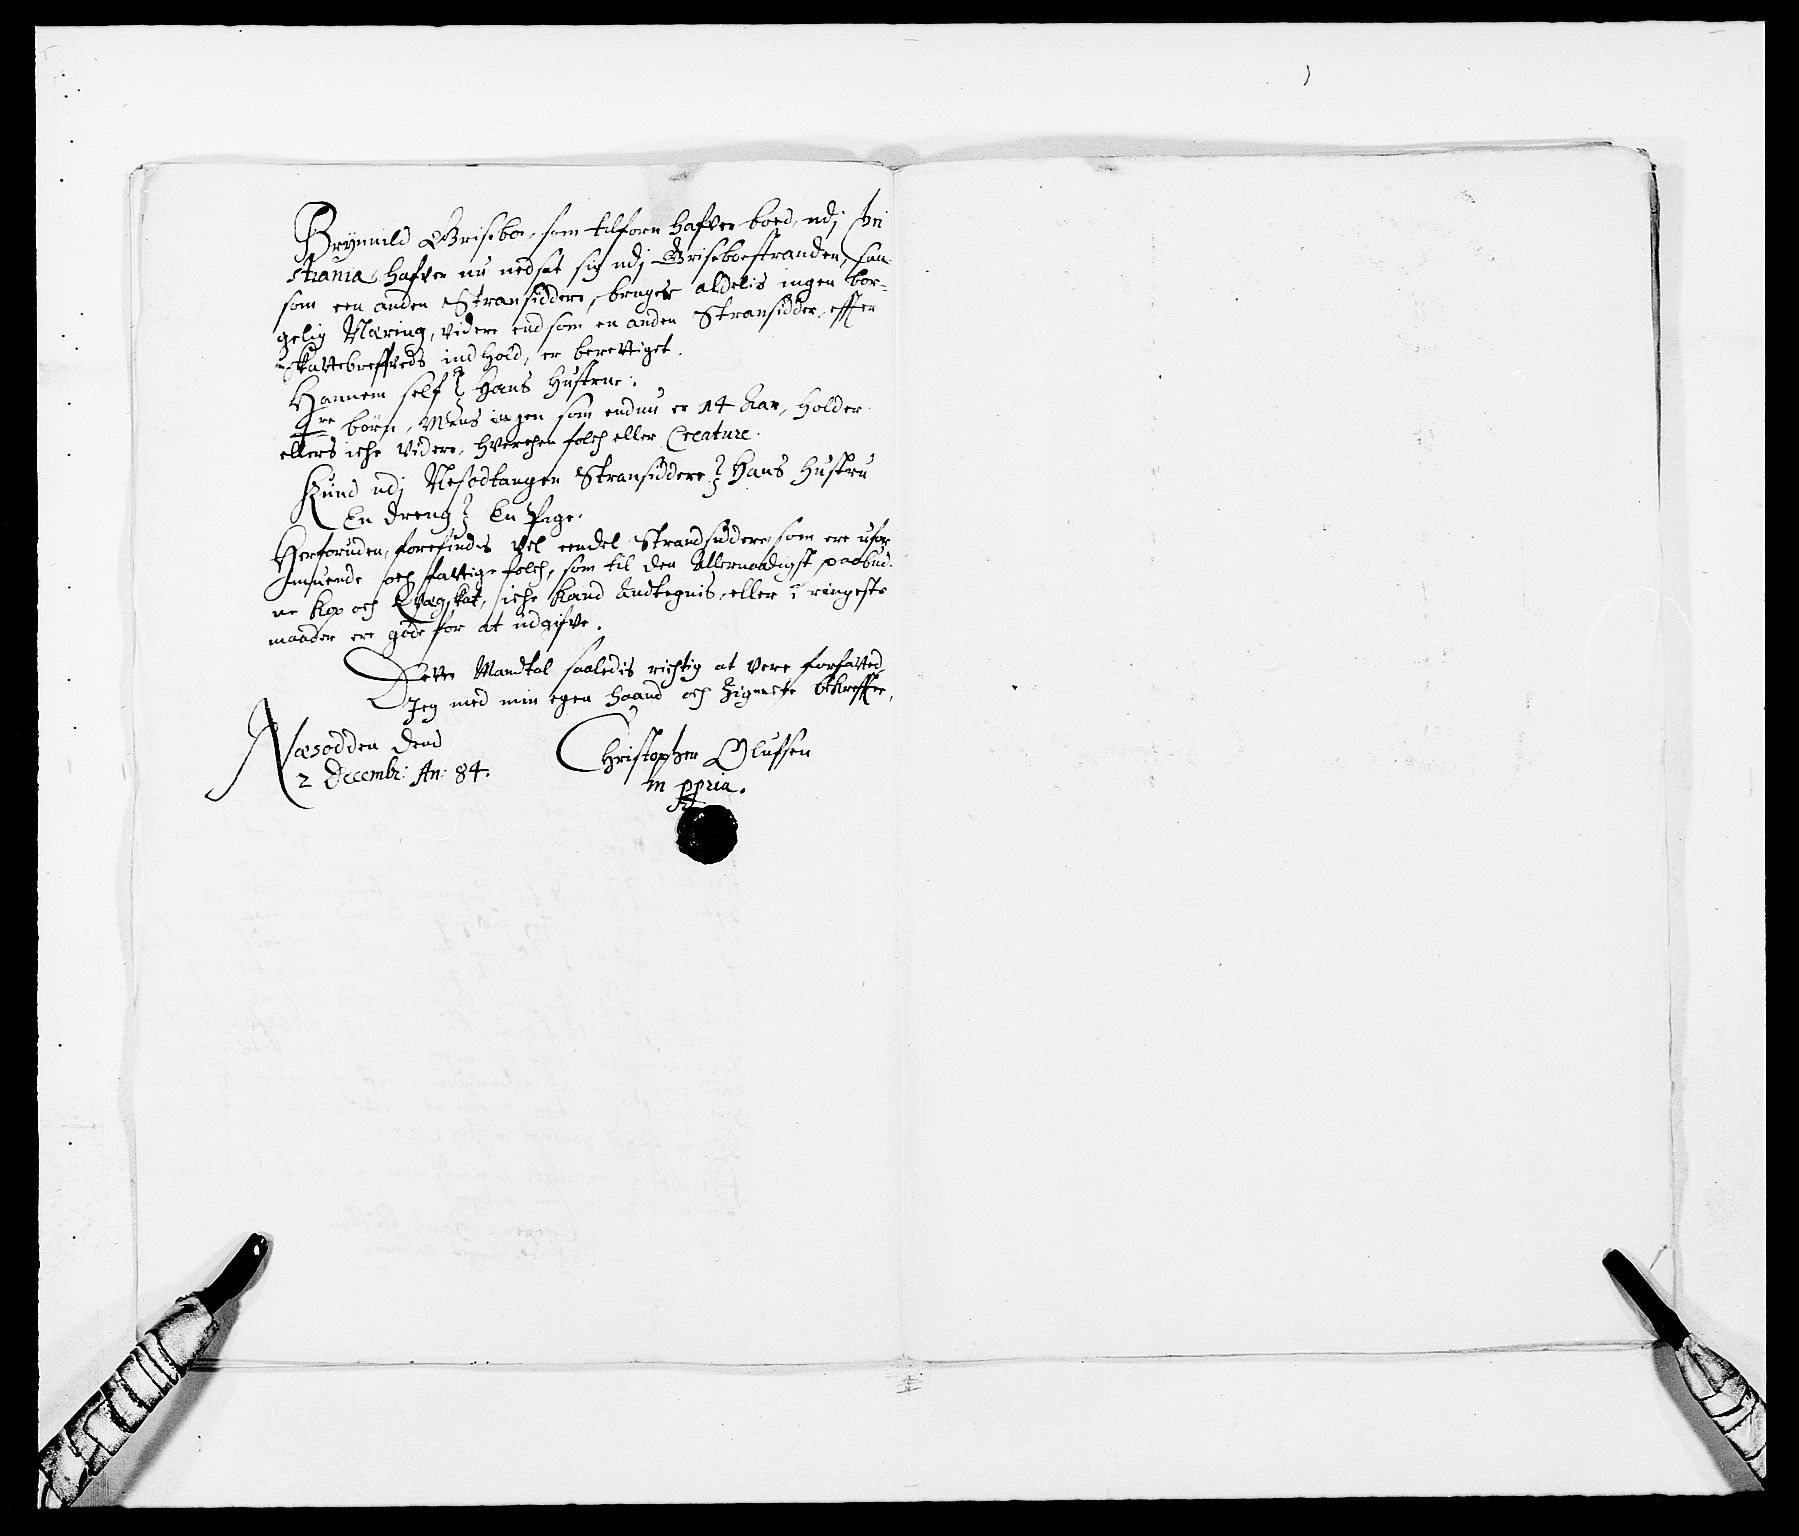 Brynnild Griseboe, som tilforn hafver boed udj Chri
stiania hafver nu nedsat sig udj Griseboestranden, saa
som een anden Stransiddere, bruger aldelis ingen bor-
gelig Næring, videre end som en anden Stransidder, effter
Skattebreffveds ind Hold, er berettiget.
Hannem self Hans Hustrue.
4re börn, Mens ingen som endnu er 14 Aar, Holder
ellers iche videre, hverchen folch eller Creature.
Knud udj Nesodtangen Stransiddere Hans Hustru
En dreng En Pige.
Herforuden, forefindis vel eendel Strandsiddere, som ere ufor
muende och fattige folch, som til den Allernaadigst paabud-
ne Kop och Qvægskat, iche kand Andtegnis, eller i ringeste
maader ere gode for at udgifve.
Dette Mandtal saaledis richtig at vere forfatted
Jeg med min egen haand och Zignete bekreffter,
Næsodden Dend
2 Decembr: An: 84.
Christopher Olufsen
m ppria.